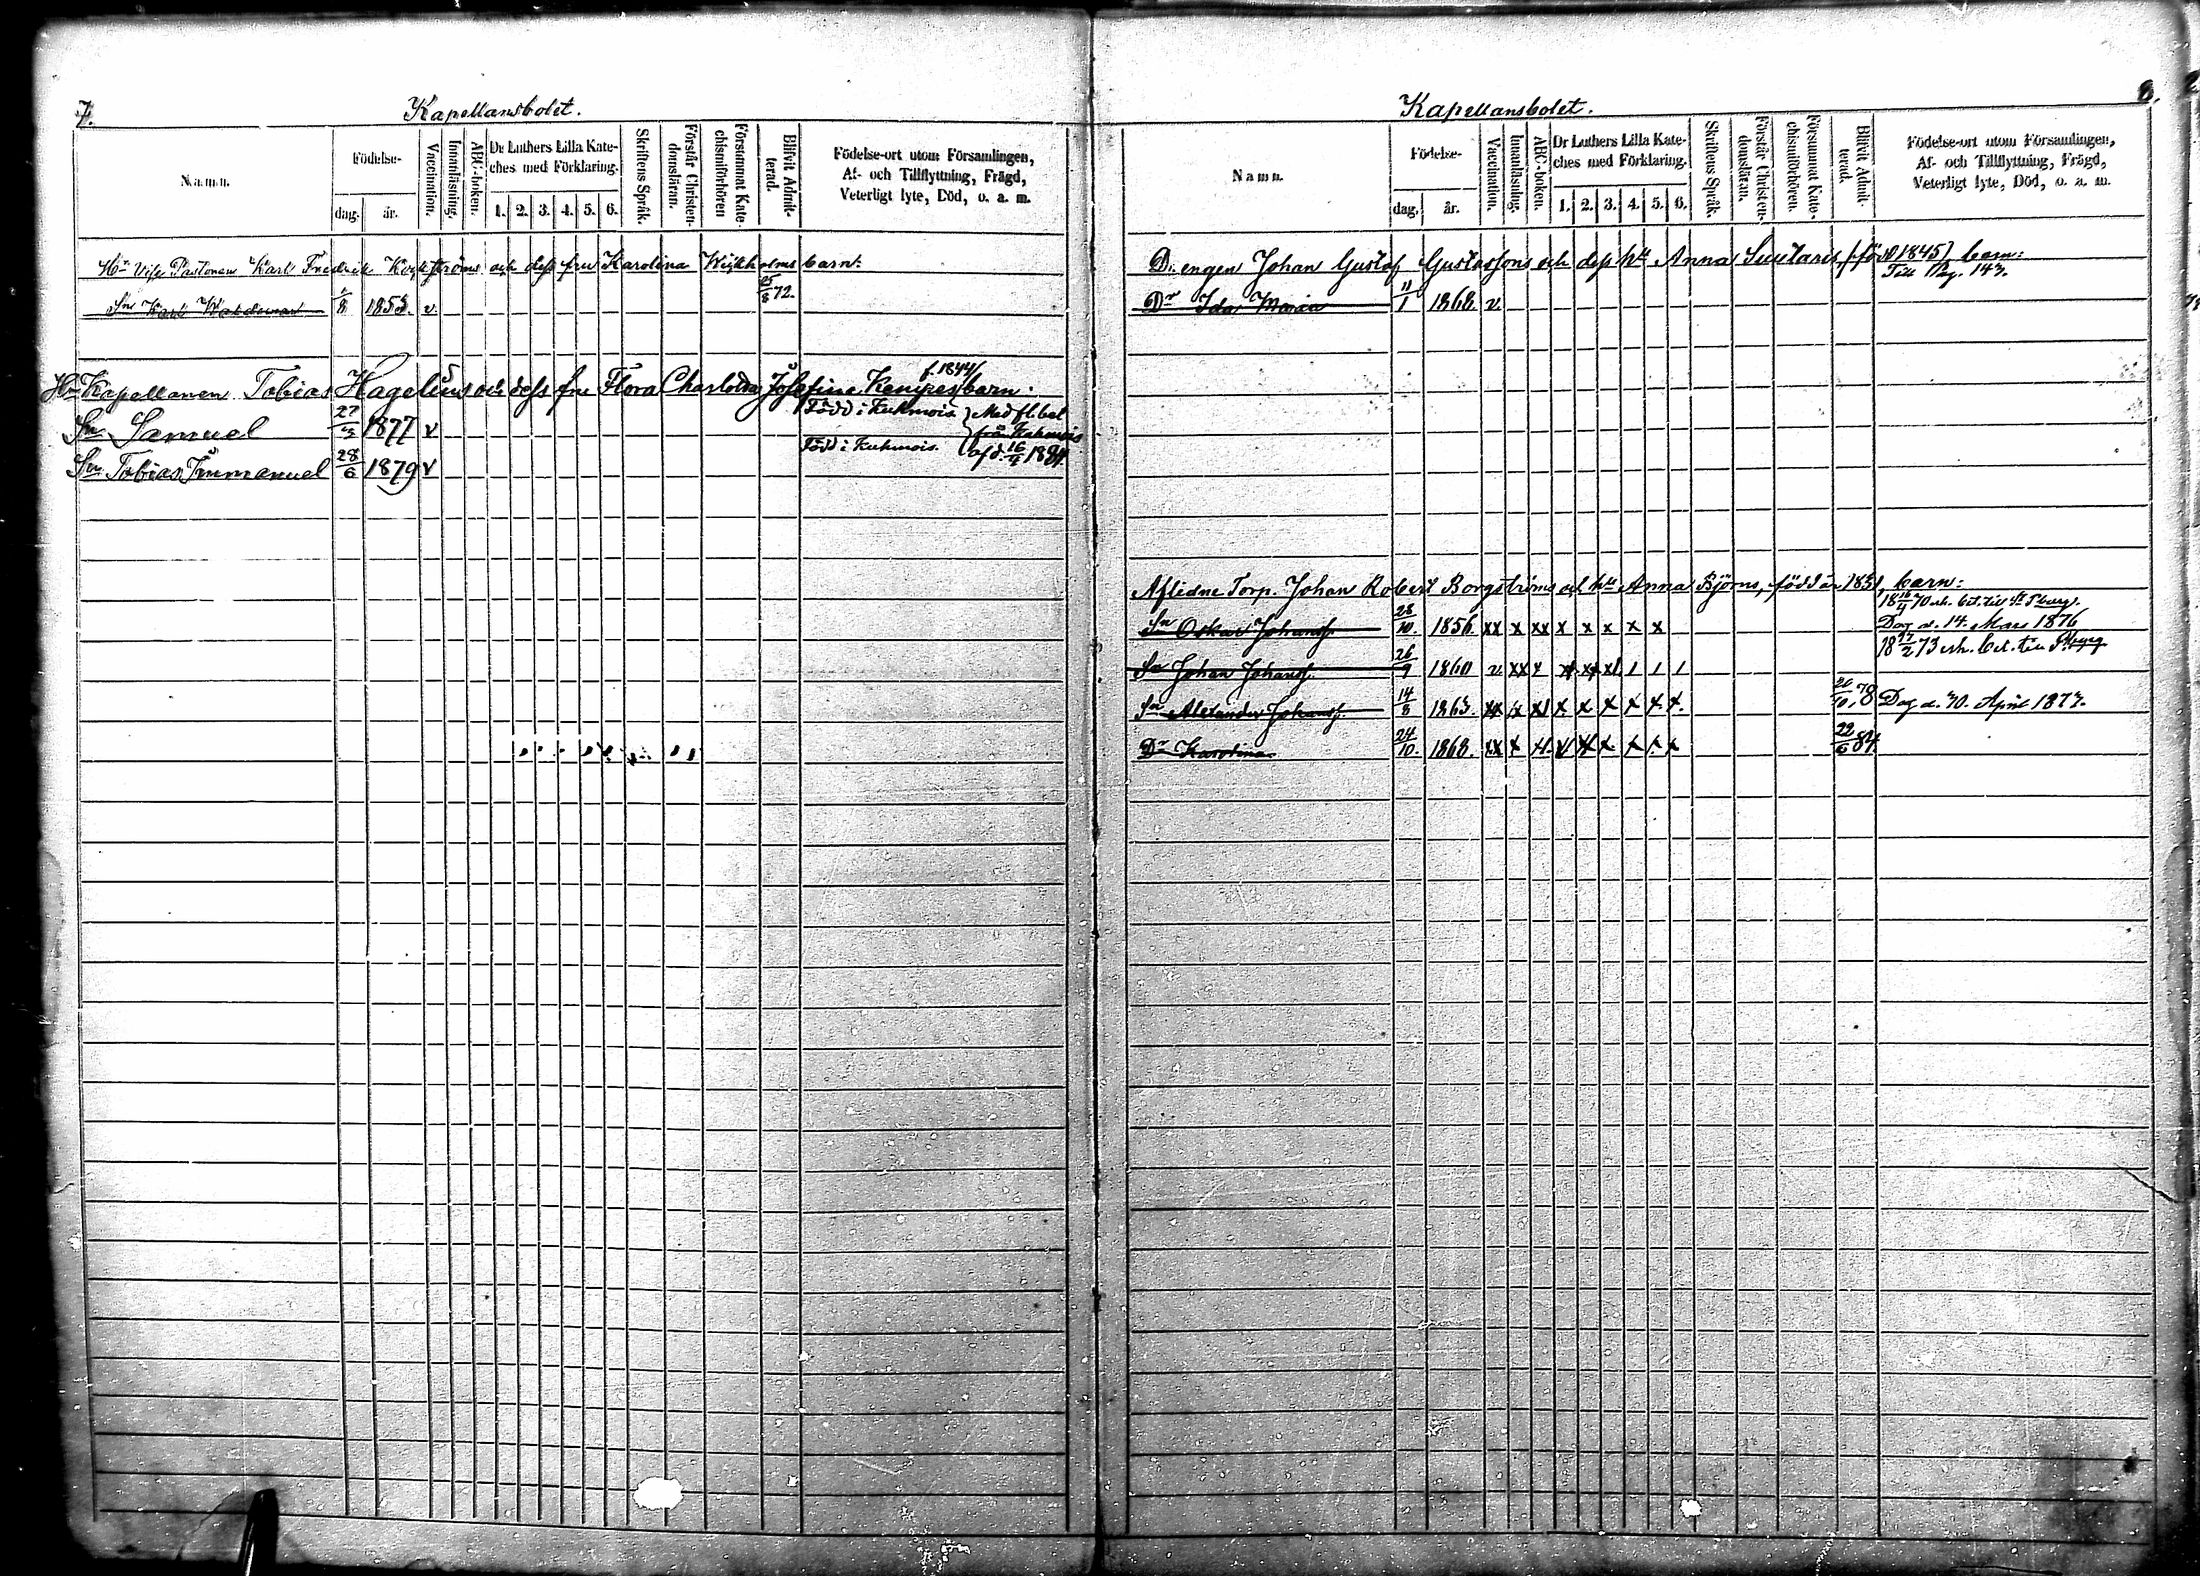 7.
Kapellansbolet.
Namn.
Födelse-
dag. år.
Vaccination.
Innanläsning.
ABC-boken.
Dr Luthers Lilla Kate-
ches med Förklaring.
1. 2. 3. 4. 5. 6.
Skriftens Språk.
Förstår Christen-
domsläran.
Försummat Kate-
chismiförhören
Blifvit Admit-
terad.
Födelse-ort utom Församlingen,
Af- och Tillflyttning, Frägd,
Veterligt lyte, Död, o. a. m.
Hr Vise Pastoren Karl Fredrik och dess fru Karolina barn:
Sn Karl Waldemar 1853. v 72.
f. 1844
Hr Kapellanen Tobias Hagelius och dess fru Flora Charlotta Josefina Kempes barn.
Sn Samuel 27 1877 v Född i Kukmois Med flbet
från Kukmois
Sn Tobias Immanuel 28/6 1879 v Född i Kukmois. af d. 16/4 1884.
8.
Kapellansbolet.
Namn.
Födelse-
dag. år.
Vaccination.
Innanläsning.
ABC-boken.
Dr Luthers Lilla Kate-
ches med Förklaring.
1. 2. 3. 4. 5. 6.
Skriftens Språk.
Förstår Christen-
domsläran.
Försummat Kate-
chismiförhören.
Blifvit Admit-
terad.
Födelse-ort utom Församlingen,
Af- och Tillflyttning, Frägd,
Veterligt lyte, Död, o. a. m.
Drengen Johan Gustaf Gustafsons och dess hu Anna Suutaris född 1845 barn:
Till pag. 143.
Dr Ida Maria 11/1 1868. v.
Aflidne Torp. Johan Robert Borgströms och hu Anna Björns, född år 1831, barn:
18 16/4 70 erh. bet. till St Pburg.
Sn Oskar Johansf. 28/10. 1856. xx x xx x x x x x Dog d. 14. Mars 1876
18 17/2 73 erh. bet. till P.burg
Sn Johan Johansf. 26/9 1860 v xx x
Sn Alexander Johansf. 14/8 1863. 26/10 78 Dog d. 30. April 1877.
Dr Karolina 24/10. 1868. 22/6 84